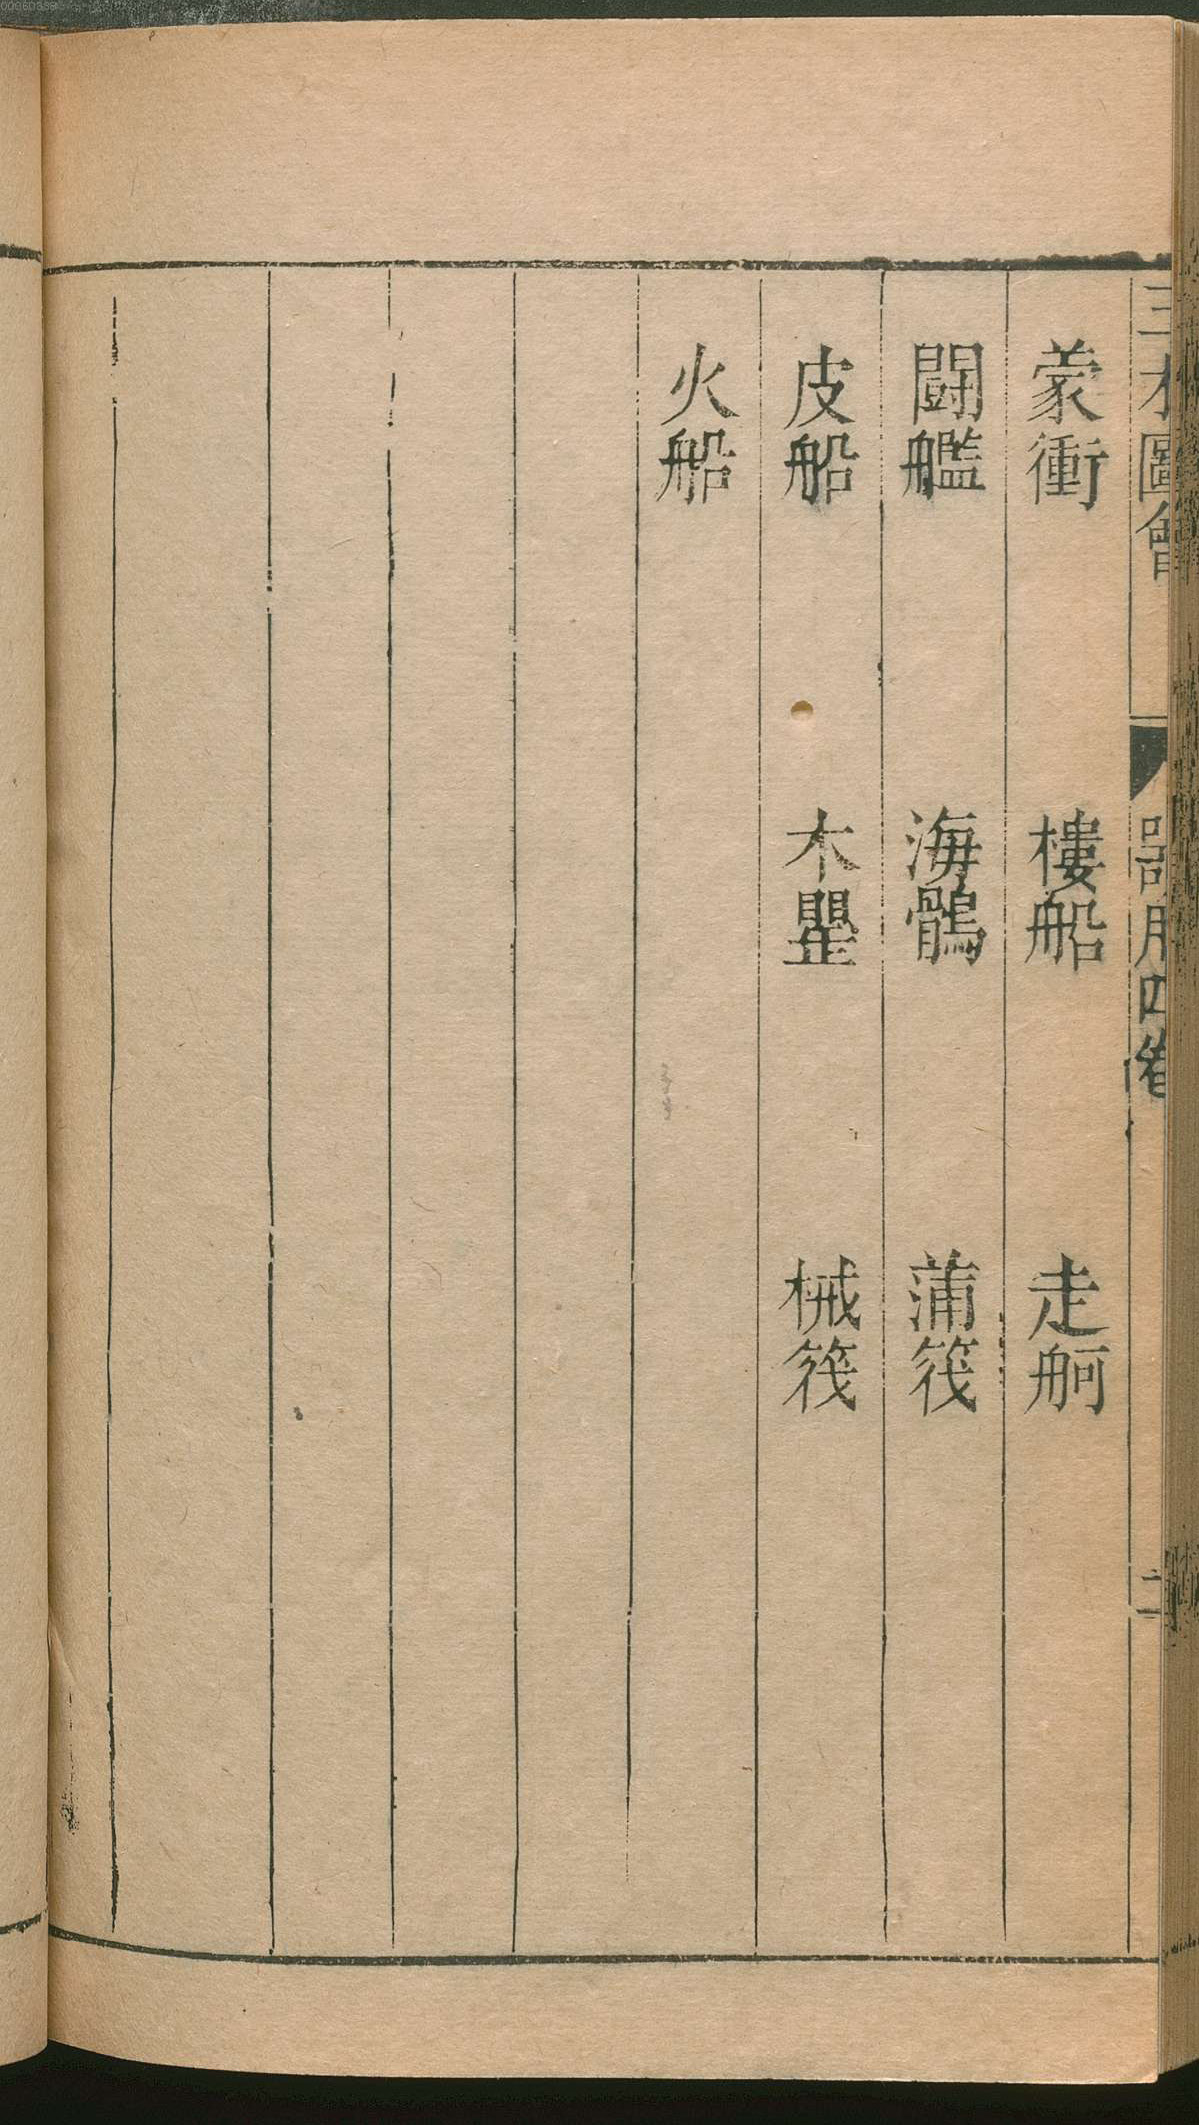 三才圖會
器用四卷
二
蒙衝　樓船　走舸
鬪艦　海鶻　蒲筏
皮船　木罌　械筏
火船